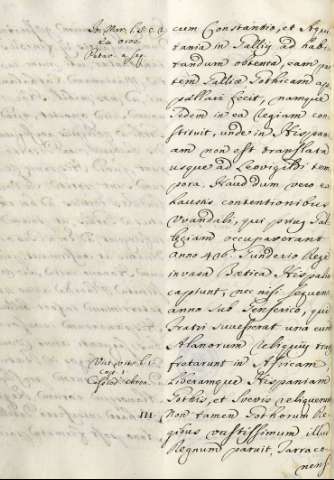 cum Constantio, et Aqui
tania in Galliis ad habi
tandum obtenta, eam par
tem Galliæ Gothicam ap
pellari fecit, namque
Sedem in ea regiam con
stituit, unde in Hispani
am non est translata
usque ad Leovigildi tem
pora. Haud dum vero ex
haustis contentionibus
Vvandali, qui prius Gal
leciam occupaverant
anno 426. Gunderio Rege
invasa Bætica Hispalim
capiunt, nec nisi sequen
anno sub Genserico, qui
Fratri successerat una cum
Alanorum reliquiis tran
fretarunt in Africam
Liberamque Hispaniam
Gothis, et Svevis reliquerunt
III. Non tamen Gothorum Re
gibus vastissimum illud
Regnum paruit, Tarraco
nens